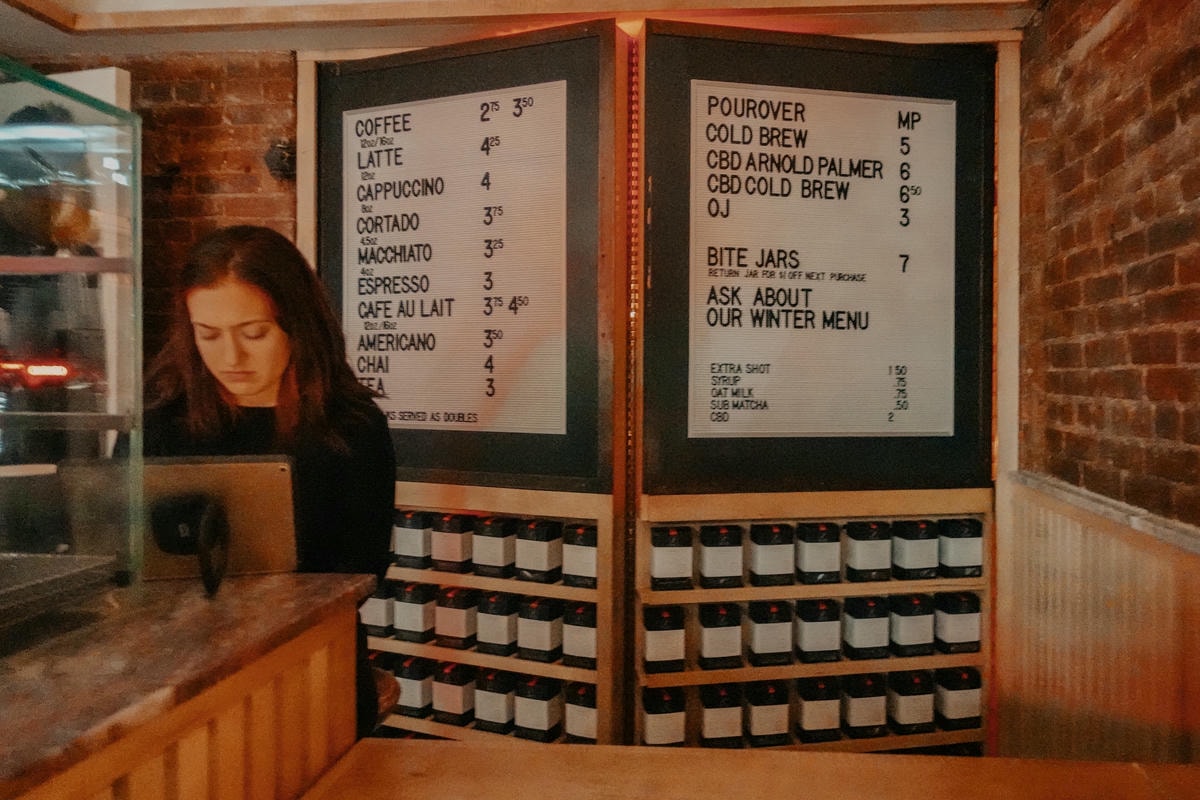 COFFEE 2.75 3.50
12oz/16oz
LATTE 4.25
12oz
CAPPUCCINO 4
8oz
CORTADO 3.75
4.5oz
MACCHIATO 3.25
4oz
ESPRESSO 3
CAFE AU LAIT 3.75 4.50
12oz/16oz
AMERICANO 3.50
CHAI 4
TEA 3
SERVED AS DOUBLES
POUROVER MP
COLD BREW 5
CBD ARNOLD PALMER 6
CBD COLD BREW 6.50
OJ 3
BITE JARS 7
RETURN JAR FOR $1 OFF NEXT PURCHASE
ASK ABOUT
OUR WINTER MENU
EXTRA SHOT 1 50
SYRUP .75
OAT MILK .75
SUB MATCHA .50
CBD 2